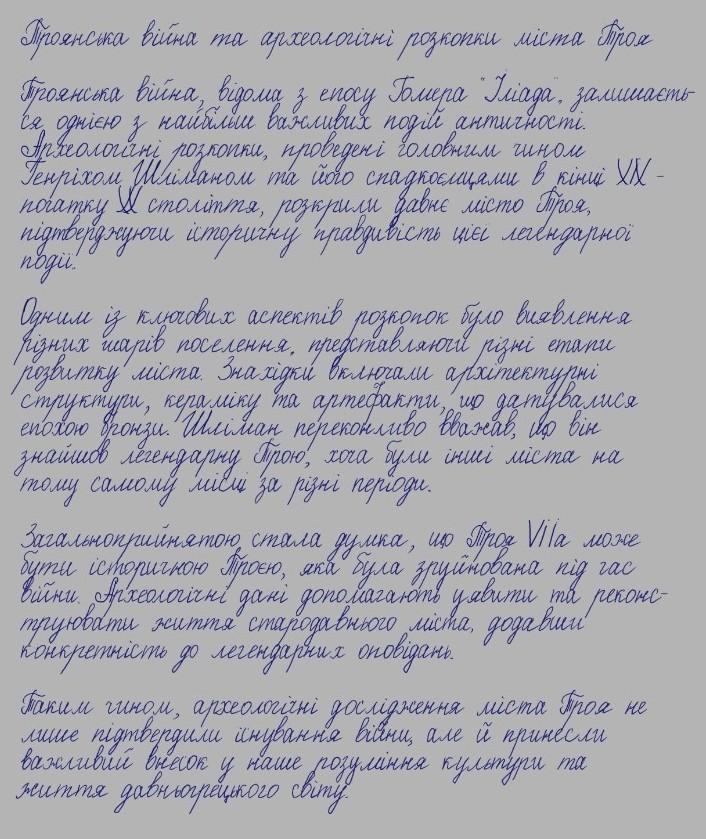 Троянська війна та археологічні розкопки міста Троя
Троянська війна, відома з епосу Гомера "Іліада", залишаєть-
ся однією з найбільш важливих подій античності.
Археологічні розкопки, проведені головним чином
Генріхом Шліманом та його спадкоємцями в кінці XIX -
початку XX століття, розкрили давнє місто Троя,
підтверджуючи історичну правдивість цієї легендарної
події.
Одним із ключових аспектів розкопок було виявлення
різних шарів поселення, представляючи різні етапи
розвитку міста. Знахідки включали архітектурні
структури, кераміку та артефакти, що датувалися
епохою бронзи. Шліман переконливо вважав, що він
знайшов легендарну Трою, хоча були інші міста на
тому самому місці за різні періоди.
Загальноприйнятою стала думка, що Троя VIIa може
бути історичною Троєю, яка була зруйнована під час
війни. Археологічні дані допомагають уявити та реконс-
труювати життя стародавнього міста, додавши
конкретність до легендарних оповідань.
Таким чином, археологічні дослідження міста Троя не
лише підтвердили існування війни, але й принесли
важливий внесок у наше розуміння культури та
життя давньогрецького світу.